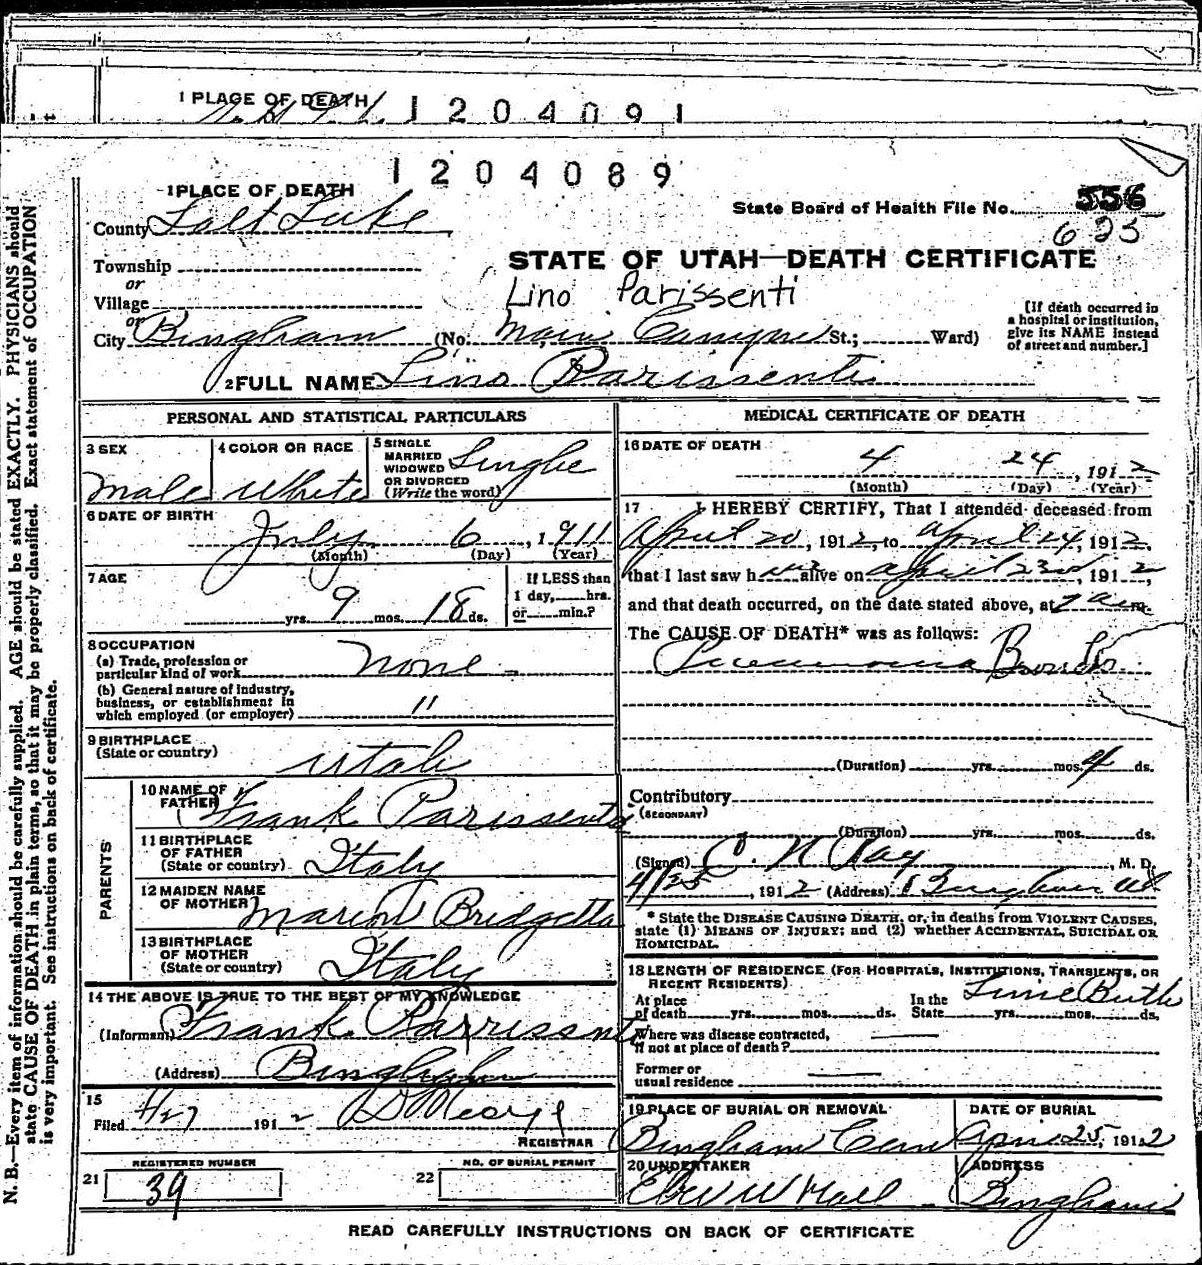 1 PLACE OF DEATH
1204091
1204089
1 PLACE OF DEATH
County Salt Lake
State Board of Health File No. 556
625
Township
or
Village
or
STATE OF UTAH—DEATH CERTIFICATE
Lino Parissenti
City Bingham (No. Main Canyon St.; Ward)
[If death occurred in
a hospital or institution,
give its NAME instead
of street and number.]
2 FULL NAME Lino Parissenti
PERSONAL AND STATISTICAL PARTICULARS
3 SEX
Male
4 COLOR OR RACE
White
5 SINGLE
MARRIED
WIDOWED
OR DIVORCED
(Write the word)
Single
6 DATE OF BIRTH
July 6, 1911
(Month) (Day) (Year)
7 AGE
yrs. 9 mos. 18 ds.
If LESS than
1 day, hrs.
or min.?
8 OCCUPATION
(a) Trade, profession or
particular kind of work None
(b) General nature of industry,
business, or establishment in
which employed (or employer) "
9 BIRTHPLACE
(State or country) Utah
PARENTS
10 NAME OF
FATHER Frank Parissenti
11 BIRTHPLACE
OF FATHER
(State or country) Italy
12 MAIDEN NAME
OF MOTHER Bridgetta
13 BIRTHPLACE
OF MOTHER
(State or country) Italy
14 THE ABOVE IS TRUE TO THE BEST OF MY KNOWLEDGE
(Informant) Frank Parrissenti
(Address) Bingham
15
Filed 4/27 1912
REGISTRAR
REGISTERED NUMBER
21 39
NO. OF BURIAL PERMIT
22
MEDICAL CERTIFICATE OF DEATH
16 DATE OF DEATH
4 24, 1912
(Month) (Day) (Year)
17 I HEREBY CERTIFY, That I attended deceased from
April 20, 1912, to April 24, 1912,
that I last saw him alive on April 23d, 1912,
and that death occurred, on the date stated above, at 7 a m.
The CAUSE OF DEATH* was as follows:
Pneumonia Broncho
(Duration) yrs. mos. 4 ds.
Contributory
(SECONDARY)
(Duration) yrs. mos. ds.
(Signed) C. N. Ray, M. D.
4/25, 1912 (Address) Bingham Ut
* State the DISEASE CAUSING DEATH, or, in deaths from VIOLENT CAUSES,
state (1) MEANS OF INJURY; and (2) whether ACCIDENTAL, SUICIDAL OR
HOMICIDAL.
18 LENGTH OF RESIDENCE (FOR HOSPITALS, INSTITUTIONS, TRANSIENTS, OR
RECENT RESIDENTS)
At place
of death yrs. mos. ds.
In the
State yrs. mos. ds.
Since Birth
Where was disease contracted,
if not at place of death?
Former or
usual residence
19 PLACE OF BURIAL OR REMOVAL
Bingham Cem
DATE OF BURIAL
April 25, 1912
20 UNDERTAKER
Eber W Hall
ADDRESS
Bingham
READ CAREFULLY INSTRUCTIONS ON BACK OF CERTIFICATE
N. B.—Every item of information should be carefully supplied. AGE should be stated EXACTLY. PHYSICIANS should
state CAUSE OF DEATH in plain terms, so that it may be properly classified. Exact statement of OCCUPATION
is very important. See instructions on back of certificate.